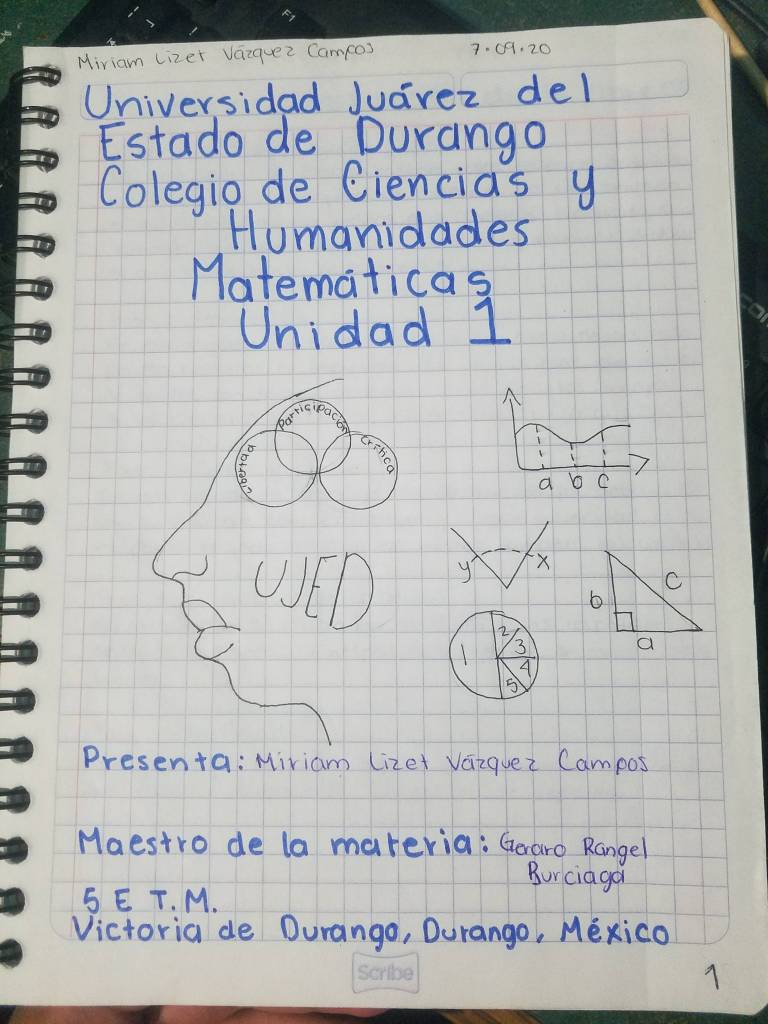 Miriam Lizet Vázquez Campos 7·09·20
Universidad Juárez del
Estado de Durango
Colegio de Ciencias y
Humanidades
Matemáticas
Unidad 1
Participación
Libertad
Crítica
a b c
UJED
y x
b c
a
1 2 3 4 5
Presenta: Miriam Lizet Vázquez Campos
Maestro de la materia: Geraro Rangel
Burciaga
5 E T.M.
Victoria de Durango, Durango, México
Scribe
1